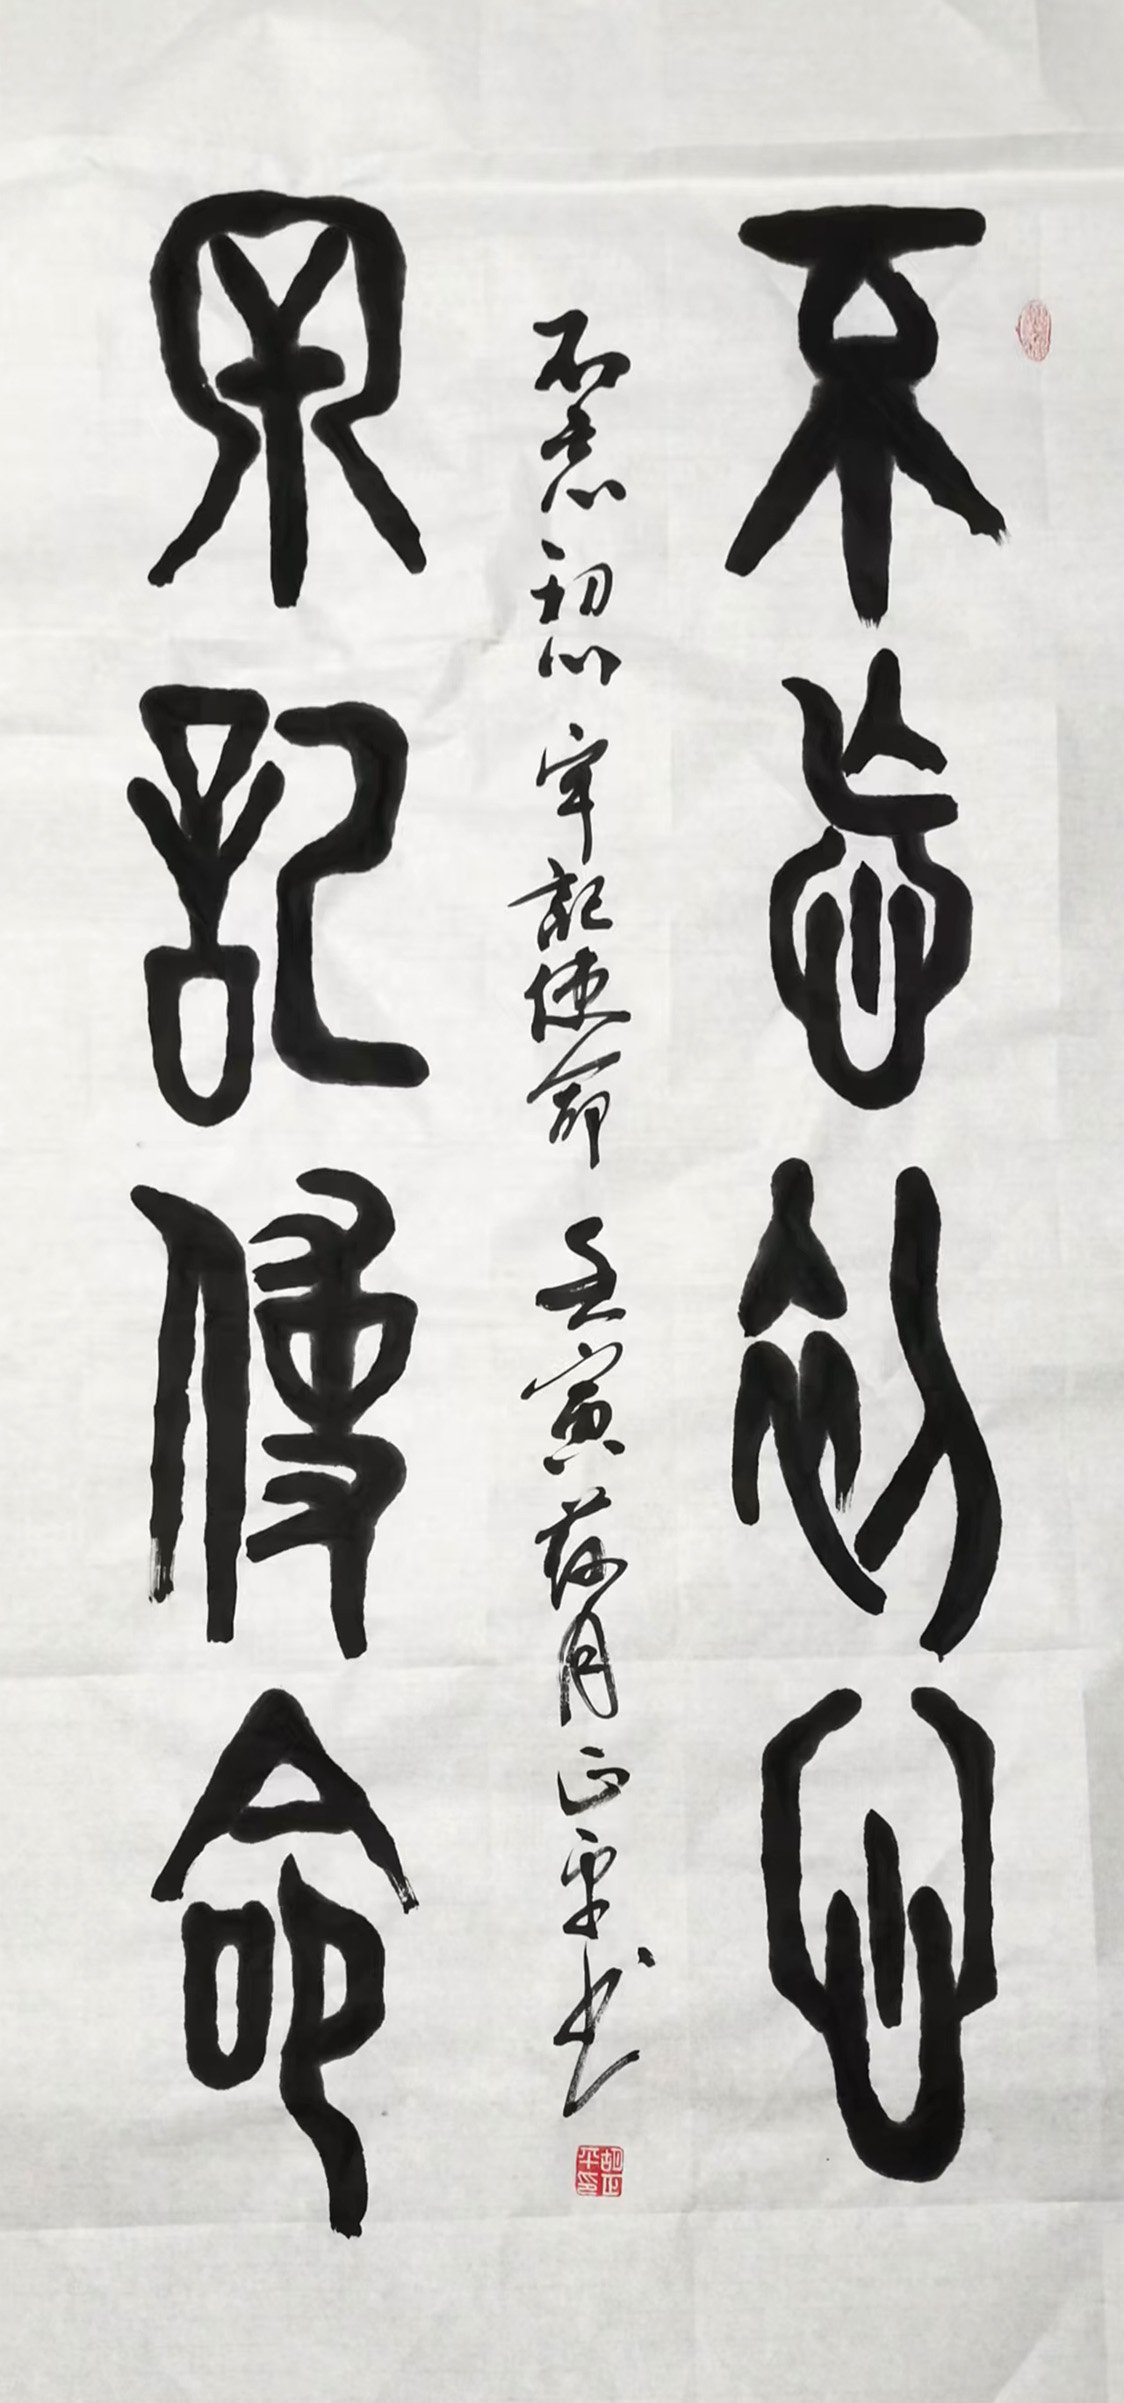 不忘初心
牢記使命
不忘初心 牢記使命 壬寅荷月正平书
胡正平印